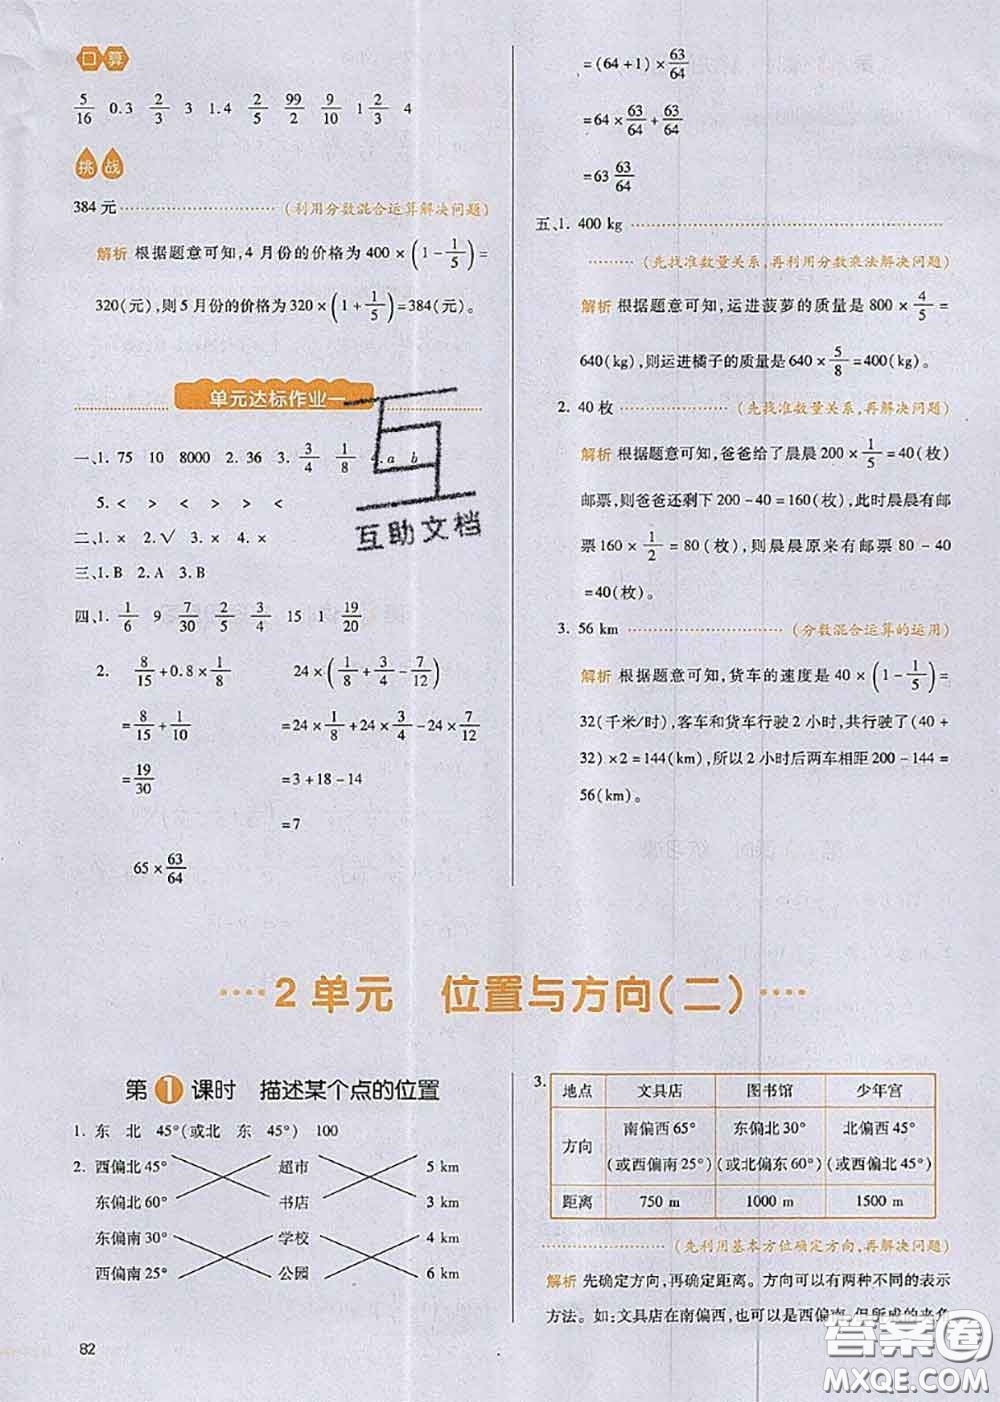 口算
5/16 0.3 2/3 3 1.4 2/5 99/2 9/10 1 2/3 4
挑战
384 元 (利用分数混合运算解决问题)
解析 根据题意可知,4 月份的价格为 400 × (1 - 1/5) =
320(元),则 5 月份的价格为 320 × (1 + 1/5) = 384(元)。
单元达标作业一
一、1. 75 10 8000 2. 36 3. 3/4 1/8 a b
5. < > < > > <
二、1. × 2. √ 3. × 4. ×
三、1. B 2. A 3. B
四、1. 1/6 9 7/30 2/5 3/4 15 1 19/20
2. 8/15 + 0.8 × 1/8 24 × (1/8 + 3/4 - 7/12)
= 8/15 + 1/10 = 24 × 1/8 + 24 × 3/4 - 24 × 7/12
= 19/30 = 3 + 18 - 14
= 7
65 × 63/64
= (64 + 1) × 63/64
= 64 × 63/64 + 63/64
= 63 63/64
五、1. 400 kg
(先找准数量关系,再利用分数乘法解决问题)
解析 根据题意可知,运进菠萝的质量是 800 × 4/5 =
640(kg),则运进橘子的质量是 640 × 5/8 = 400(kg)。
2. 40 枚 (先找准数量关系,再解决问题)
解析 根据题意可知,爸爸给了晨晨 200 × 1/5 = 40(枚)
邮票,则爸爸还剩下 200 - 40 = 160(枚),此时晨晨有邮
票 160 × 1/2 = 80(枚),则晨晨原来有邮票 80 - 40
= 40(枚)。
3. 56 km (分数混合运算的运用)
解析 根据题意可知,货车的速度是 40 × (1 - 1/5) =
32(千米/时),客车和货车行驶 2 小时,共行驶了 (40 +
32) × 2 = 144(km),所以 2 小时后两车相距 200 - 144 =
56(km)。
互助文档
2 单元 位置与方向(二)
第 1 课时 描述某个点的位置
1. 东 北 45°(或北 东 45°) 100
2. 西偏北 45° 超市 5 km
东偏北 60° 书店 3 km
东偏南 30° 学校 4 km
西偏南 25° 公园 6 km
3. 地点 文具店 图书馆 少年宫
方向 南偏西 65° 东偏北 30° 北偏西 45°
(或西偏南 25°) (或北偏东 60°) (或西偏北 45°)
距离 750 m 1000 m 1500 m
(先利用基本方位确定方向,再解决问题)
解析 先确定方向,再确定距离。方向可以有两种不同的表示
方法。如:文具店在南偏西,也可以是西偏南,但所成的夹角
82
答案圈
MXQE.COM